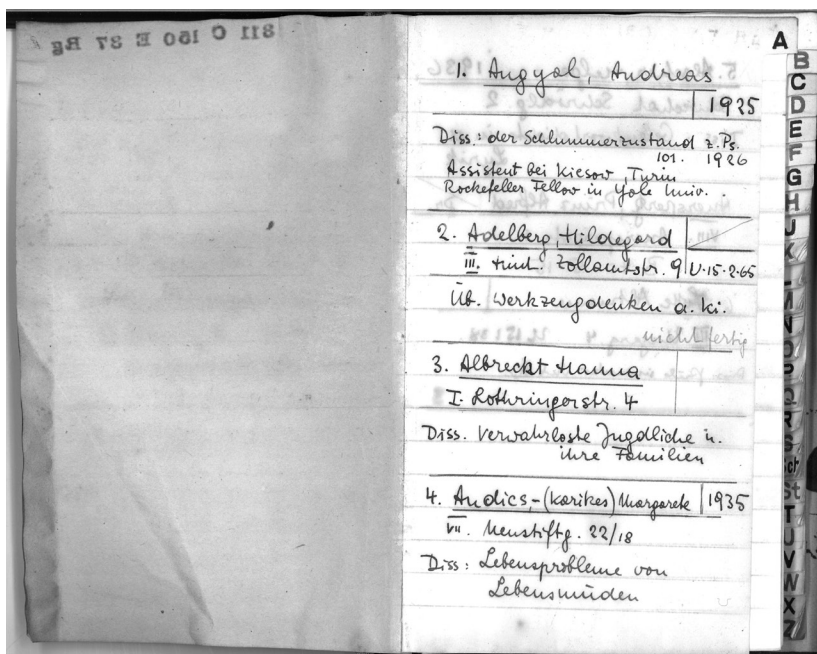 811 C 150 E 37 Rg
1. Angyal, Andreas
1925
Diss.: der Schlummerzustand z. Ps.
101. 1926
Assistent bei Kiesow, Turin
Rockefeller Fellow in Yale Univ.
2. Adelberg, Hildegard
III. Hint. Zollamtstr. 9 U·15·2·65
Üb. Werkzeugdenken a. Ki.
nicht fertig
3. Albrecht Hanna
I. Lothringerstr. 4
Diss. Verwahrloste Jugdliche u.
ihre Familien
4. Andics-(Karikes) Margarete 1935
VII. Neustiftg. 22/18
Diss: Lebensprobleme von
Lebensmüden
A
B
C
D
E
F
G
H
J
K
L
M
N
O
P
Q
R
S
Sch
St
T
U
V
W
X
Z